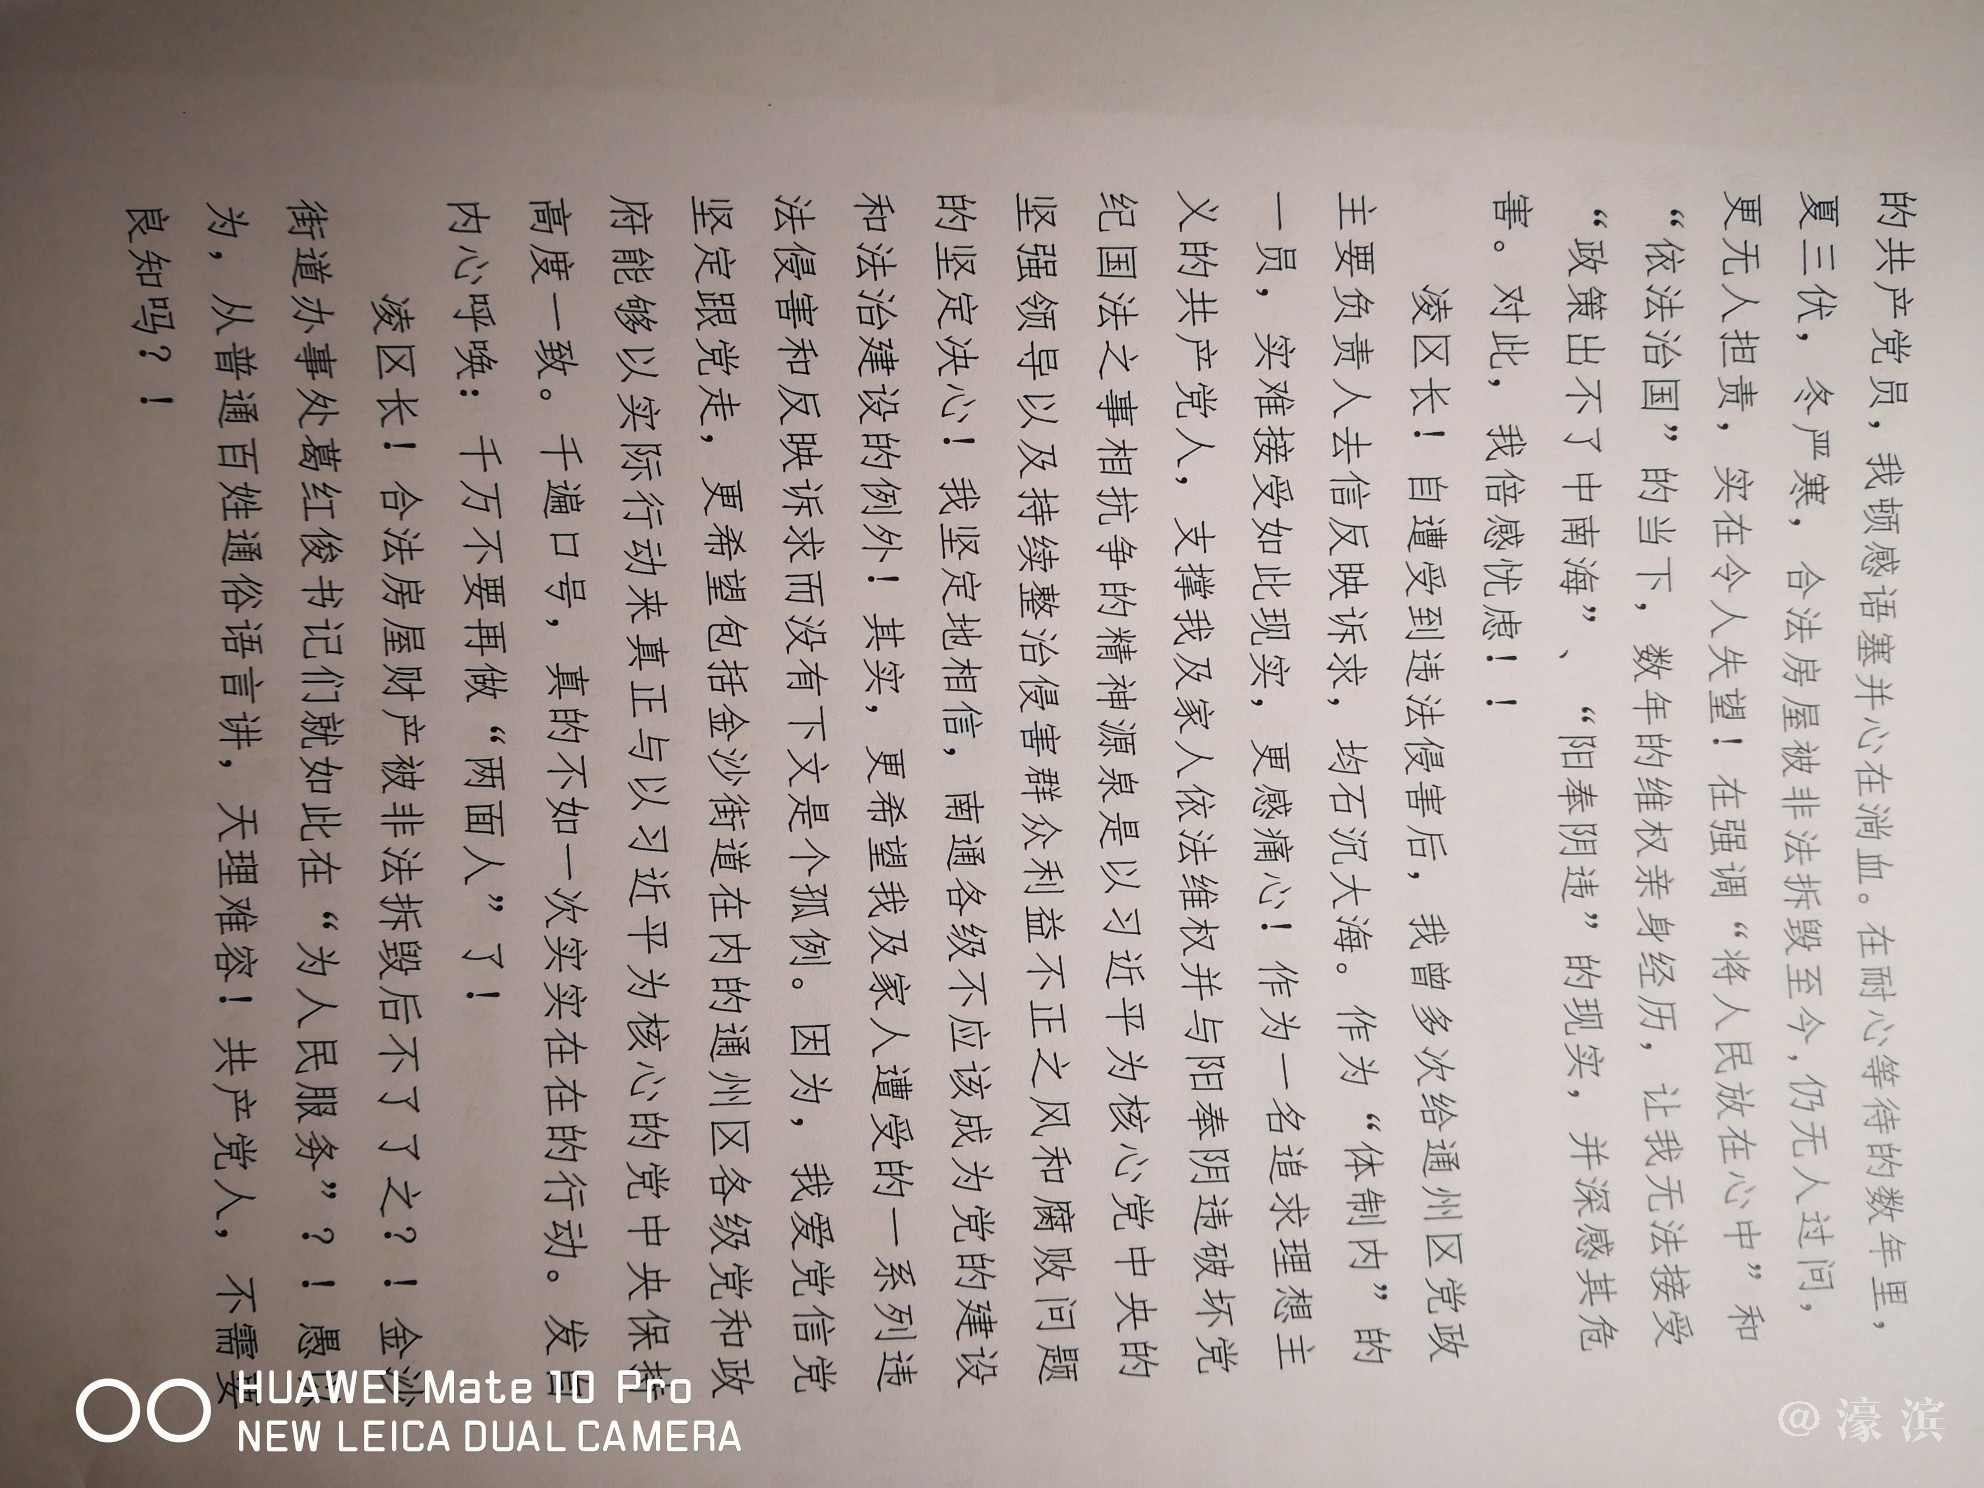 的共产党员，我顿感语塞并心在淌血。在耐心等待的数年里，
夏三伏，冬严寒，合法房屋被非法拆毁至今，仍无人过问，
更无人担责，实在令人失望！在强调“将人民放在心中”和
“依法治国”的当下，数年的维权亲身经历，让我无法接受
“政策出不了中南海”、“阳奉阴违”的现实，并深感其危
害。对此，我倍感忧虑！！
凌区长！自遭受到违法侵害后，我曾多次给通州区党政
主要负责人去信反映诉求，均石沉大海。作为“体制内”的
一员，实难接受如此现实，更感痛心！作为一名追求理想主
义的共产党人，支撑我及家人依法维权并与阳奉阴违破坏党
纪国法之事相抗争的精神源泉是以习近平为核心党中央的
坚强领导以及持续整治侵害群众利益不正之风和腐败问题
的坚定决心！我坚定地相信，南通各级不应该成为党的建设
和法治建设的例外！其实，更希望我及家人遭受的一系列违
法侵害和反映诉求而没有下文是个孤例。因为，我爱党信党
坚定跟党走，更希望包括金沙街道在内的通州区各级党和政
府能够以实际行动来真正与以习近平为核心的党中央保持
高度一致。千遍口号，真的不如一次实实在在的行动。发自
内心呼唤：千万不要再做“两面人”了！
凌区长！合法房屋财产被非法拆毁后不了了之？！金沙
街道办事处葛红俊书记们就如此在“为人民服务”？！愚以
为，从普通百姓通俗语言讲，天理难容！共产党人，不需要
良知吗？！
HUAWEI Mate 10 Pro
NEW LEICA DUAL CAMERA
@濠滨